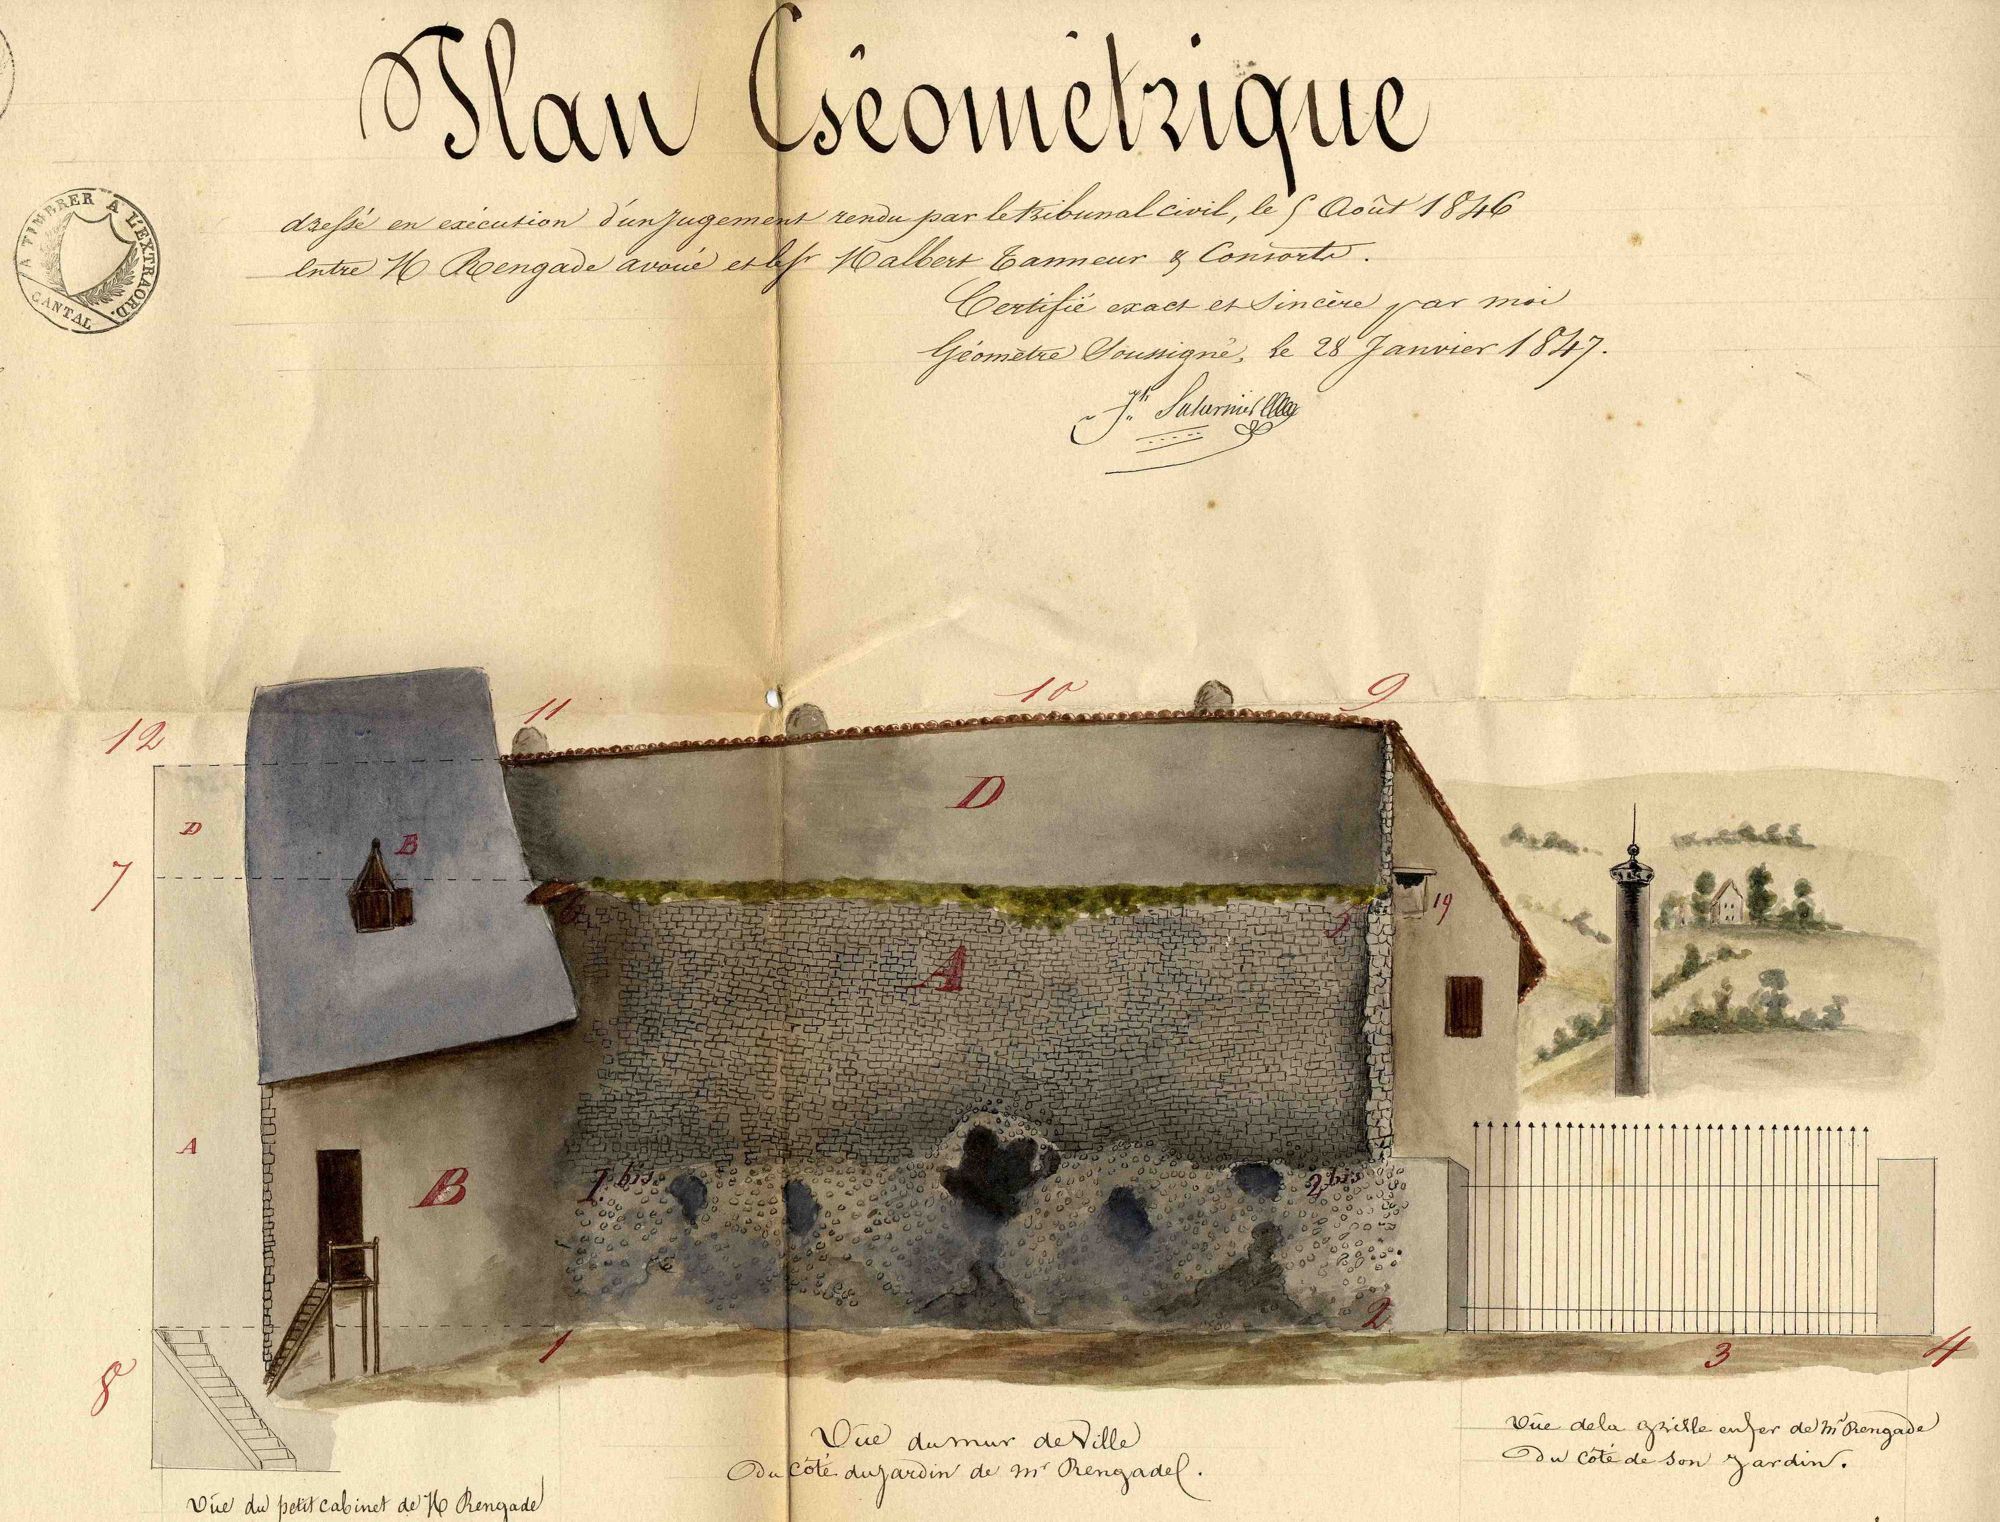 Plan Géométrique
A TIMBRER A L'EXTRAORD.
CANTAL
dressé en exécution d'un jugement rendu par le tribunal civil, le 5 Août 1846
entre M Rengade avoué et le Sr Malbert Tanneur & Consorts.
Certifié exact et Sincère par moi
Géomètre Soussigné, le 28 Janvier 1847.
12
11
10
9
D
D
B
7
6
19
A
A
B
1. bis
2 bis
1
2
3
4
8
Vûe du mur de Ville
Du Côté du jardin de Mr Rengade.
Vûe de la Grille en fer de Mr Rengade
Du Côté de Son Jardin.
Vûe du petit cabinet de M Rengade